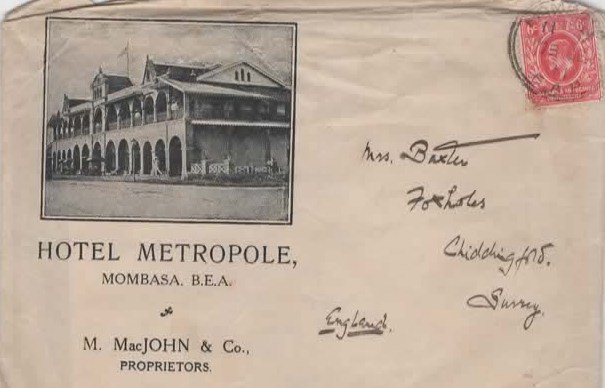 HOTEL METROPOLE,
MOMBASA, B.E.A.
M. MacJOHN & Co.,
PROPRIETORS.
6c
6c
Mrs. Baxter
Foxholes
Chiddingfold.
Surrey.
England.